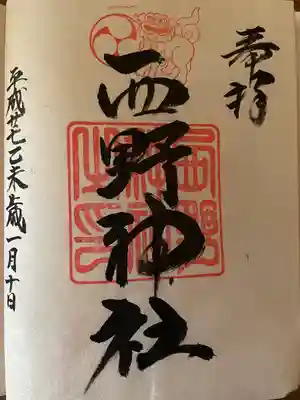 奉拝
西野神社
平成廿七乙未歳一月十日